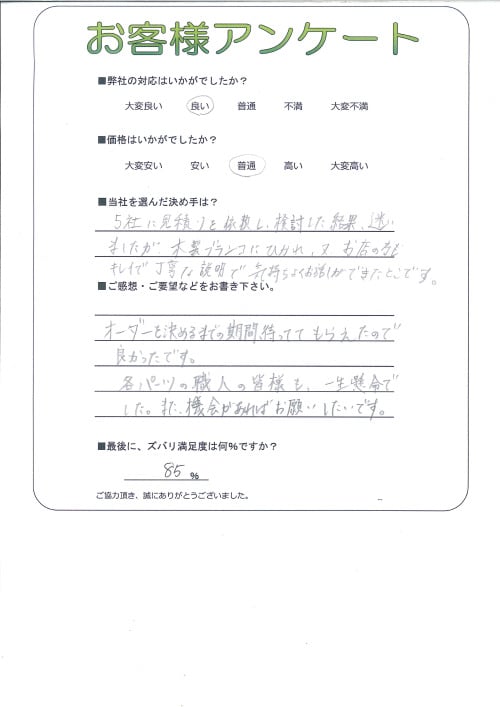 お客様アンケート
■弊社の対応はいかがでしたか?
大変良い 良い 普通 不満 大変不満
■価格はいかがでしたか?
大変安い 安い 普通 高い 大変高い
■当社を選んだ決め手は?
5社に見積りを依頼し、検討した結果、迷い
ましたが 木製ブランコにひかれ、又 お店の方も
キレイで丁寧な説明で気持ちよくお話しができたとこです。
■ご感想・ご要望などをお書き下さい。
オーダーを決めるまでの期間、待ってて もらえたので
良かったです。
各パーツの職人の皆様も、一生懸命で
した。また、機会があればお願いしたいです。
■最後に、ズバリ満足度は何%ですか?
85 %
ご協力頂き、誠にありがとうございました。